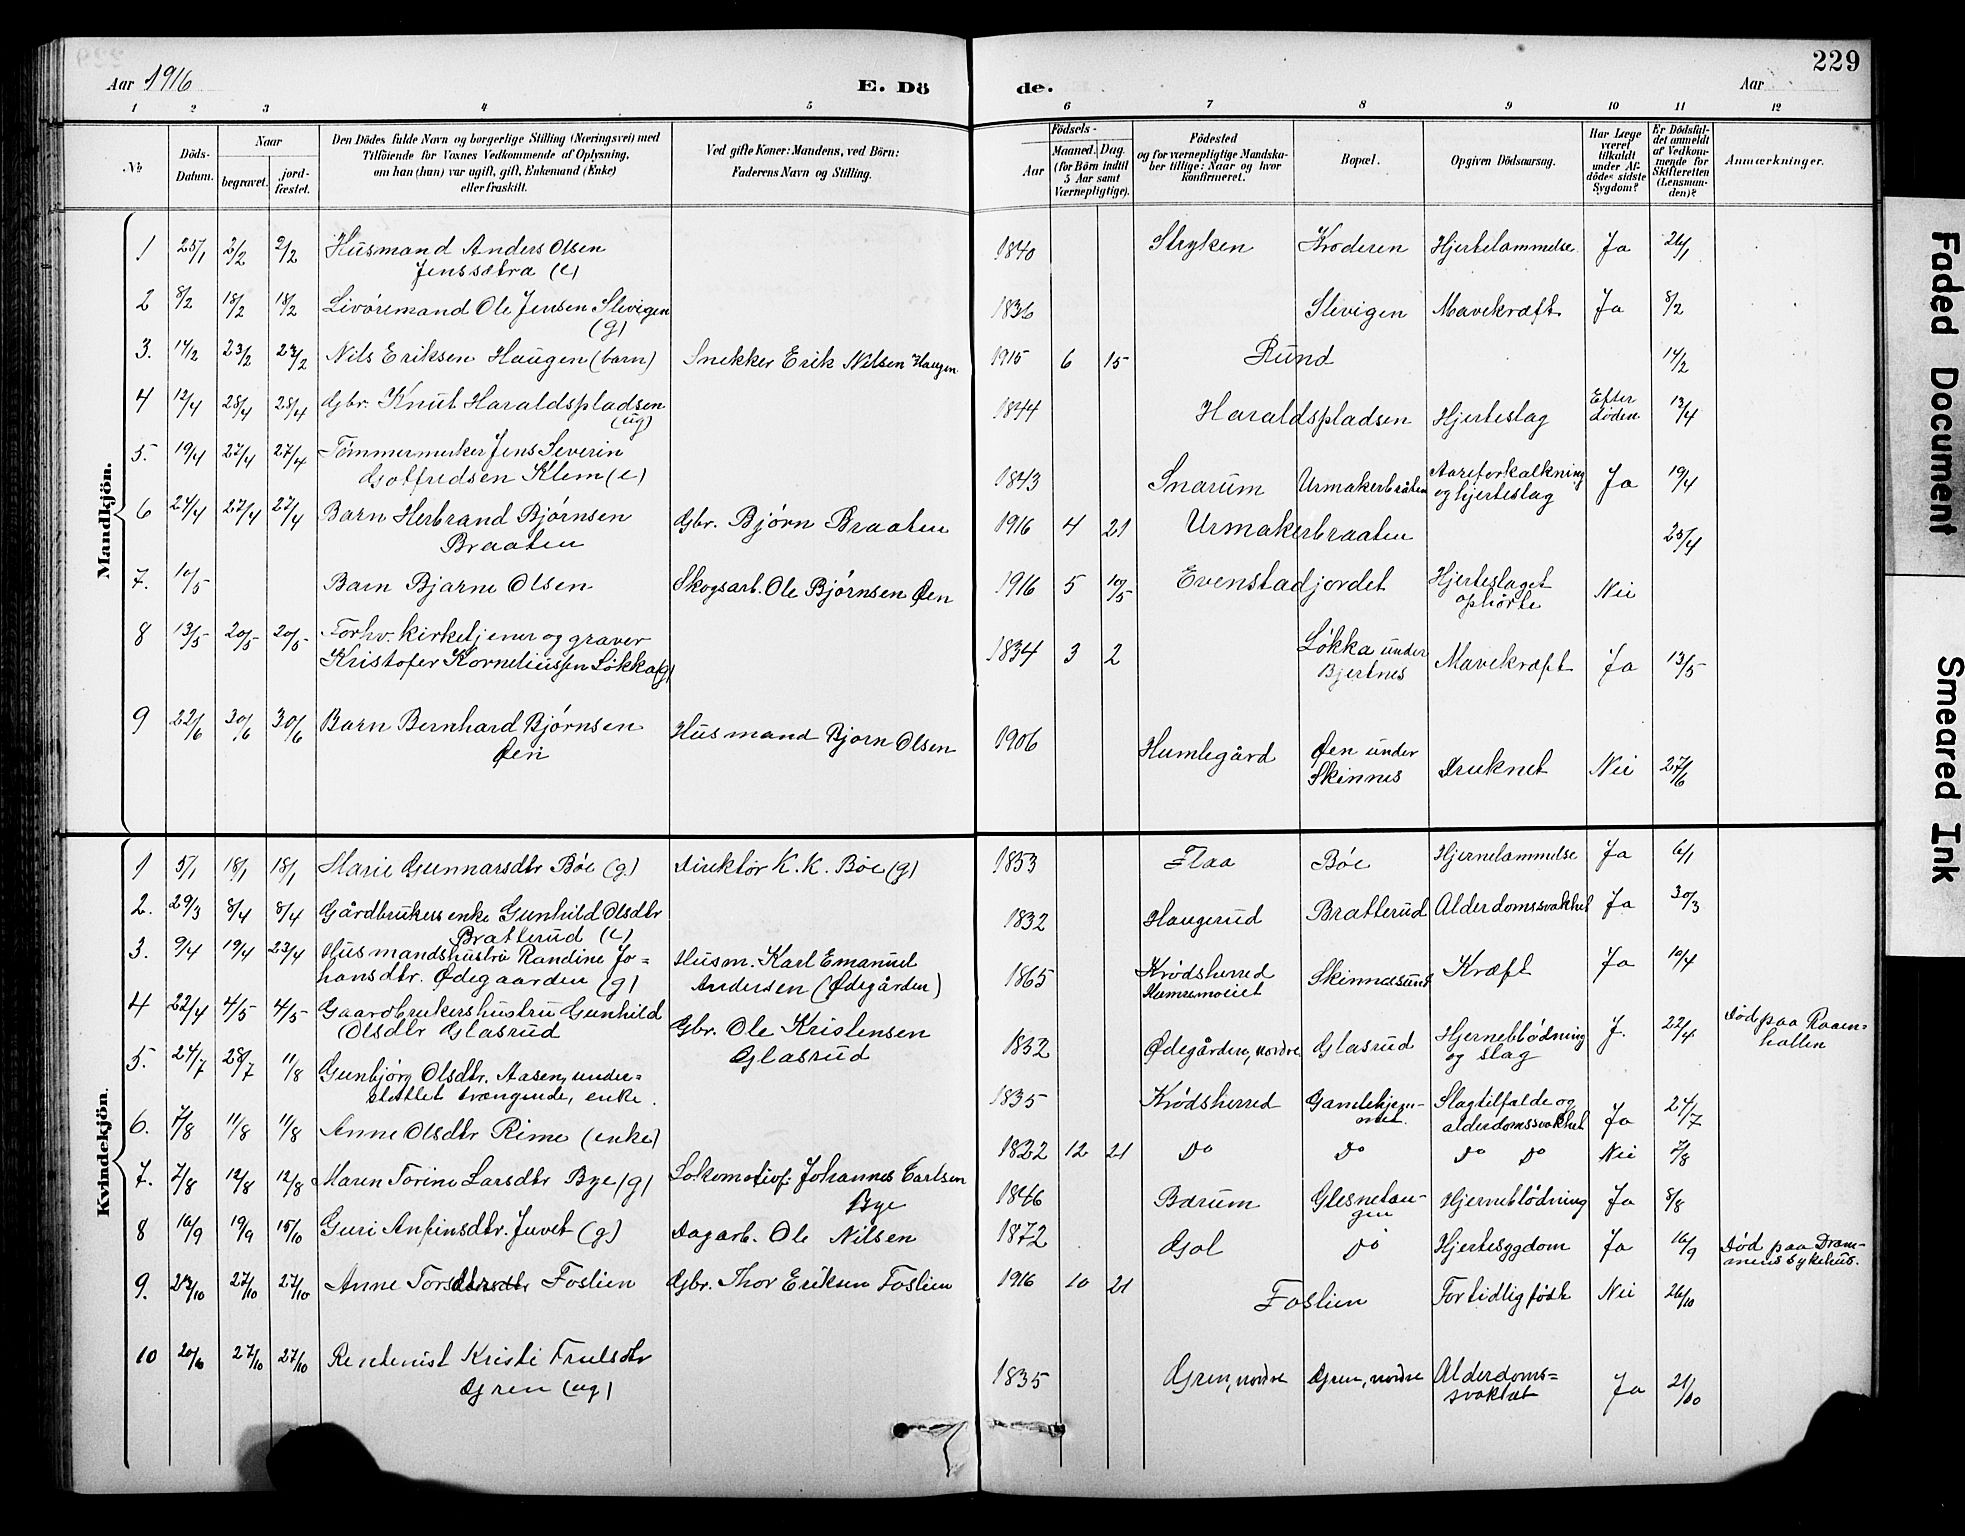 229
Aar 1916 E. Dö de. Aar
1 2 3 4 5 6 7 8 9 10 11 12
№ Döds-Datum. Naar begravet. jord-fæstet. Den Dödes fulde Navn og borgerlige Stilling (Næringsvei) med Tilföiende for Voxnes Vedkommende af Oplysning, om han (hun) var ugift, gift, Enkemand (Enke) eller fraskilt. Ved gifte Koner: Mandens, ved Börn: Faderens Navn og Stilling. Födsels- Aar Maaned. Dag. (for Börn indtil 5 Aar samt Værnepligtige). Födested og for værnepligtige Mandska-ber tillige: Naar og hvor konfirmeret. Bopæl. Opgiven Dödsaarsag. Har Læge været tilkaldt under Af-dödes sidste Sygdom? Er Dödsfal-det anmeldt af Vedkom-mende for Skifteretten (Lensman-den)? Anmærkninger.
Mandkjön.
1 25/1 2/2 2/2 Husmand Anders Olsen Jenssætra (e) 1840 Stryken Krøderen Hjertelammelse Ja 26/1
2 8/2 18/2 18/2 Livøremand Ole Jensen Slevigen (g) 1836 Slevigen Mavekræft Ja 8/2
3. 14/2 23/2 23/2 Nils Eriksen Haugen (barn) Snekker Erik Nilsen Haugen 1915 6 15 Rund 14/2
4 12/4 28/4 28/4 Gbr. Knut Haraldspladsen (ug) 1844 Haraldspladsen Hjerteslag Efter døden 13/4
5. 19/4 27/4 27/4 Tømmermerker Jens Severin Gotfredsen Klem (e) 1843 Snarum Urmakerbråten Aareforkalkning og hjerteslag Ja 19/4
6 24/4 27/4 27/4 Barn Herbrand Bjørnsen Braaten Gbr. Bjørn Braaten 1916 4 21 Urmakerbraaten 25/4
7. 10/5 Barn Bjarne Olsen Skogsarb. Ole Bjørnsen Øen 1916 5 10/5 Evenstadjordet Hjerteslaget ophørte Nei
8 13/5 20/5 20/5 Forhv. kirketjener og graver Kristofer Korneliussen Løkka (g) 1834 3 2 Løkka under Bjertnes Mavekræft Ja 13/5
9 22/6 30/6 30/6 Barn Bernhard Bjørnsen Øen Husmand Bjørn Olsen 1906 Humlegård Øen under Skinnes Druknet Nei 27/6
Kvindekjön.
1 5/1 18/1 18/1 Marie Gunnarsdtr Bøe (g) Direktør K. K. Bøe (g) 1853 Flaa Bøe Hjernelammelse Ja 6/1
2. 29/3 8/4 8/4 Gårdbrukers enke Gunhild Olsdtr Bratterud (e) 1832 Haugerud Bratterud Alderdomssvakhet Ja 30/3
3. 9/4 19/4 23/4 Husmandshustru Randine Jo=hansdtr. Ødegaarden (g) Husm. Karl Emanuel Andersen (Ødegården) 1865 Krødsherred Hamremoeiet Skinnessund Kræft Ja 10/4
4 22/4 4/5 4/5 Gaardbrukerhustru Gunhild Olsdtr Glasrud Gbr. Ole Kristensen Glasrud 1832 Ødegården, nordre Glasrud Hjerneblødning og slag J. 22/4 Død paa Raam=hallen
5. 24/7 28/7 11/8 Gunbjørg Olsdtr. Aasen, under=støttet trængende, enke. 1835 Krødsherred Gamlehjem-met. Slagtilfælde og alderdomssvakhet Ja 27/7
6. 7/8 11/8 11/8 Anne Olsdtr Rime (enke) 1822 12 21 Do Do Do Do Nei 7/8
7. 7/8 12/8 12/8 Maren Torine Larsdtr Bye (g) Lokomotivf. Johannes Carlsen Bye 1846 Bærum Glesnetan-gen Hjerneblødning Ja 8/8
8 16/9 19/9 15/10 Guri Anfinsdtr. Juvet (g) Dagarb. Ole Nilsen 1872 Gol Do Hjertesygdom Ja 16/9 Død paa Dram-mens sykehus.
9. 23/10 27/10 27/10 Anne Torsdtr Foslien Gbr. Thor Eriksen Foslien 1916 10 21 Foslien For tidlig født Nei 26/10
10 20/6 27/10 27/10 Rentenist Kristi Truls dtr Gren (ug) 1835 Gren, nordre Gren, nordre Alderdoms=svakhet Ja 21/10
Faded Document
Smeared Ink